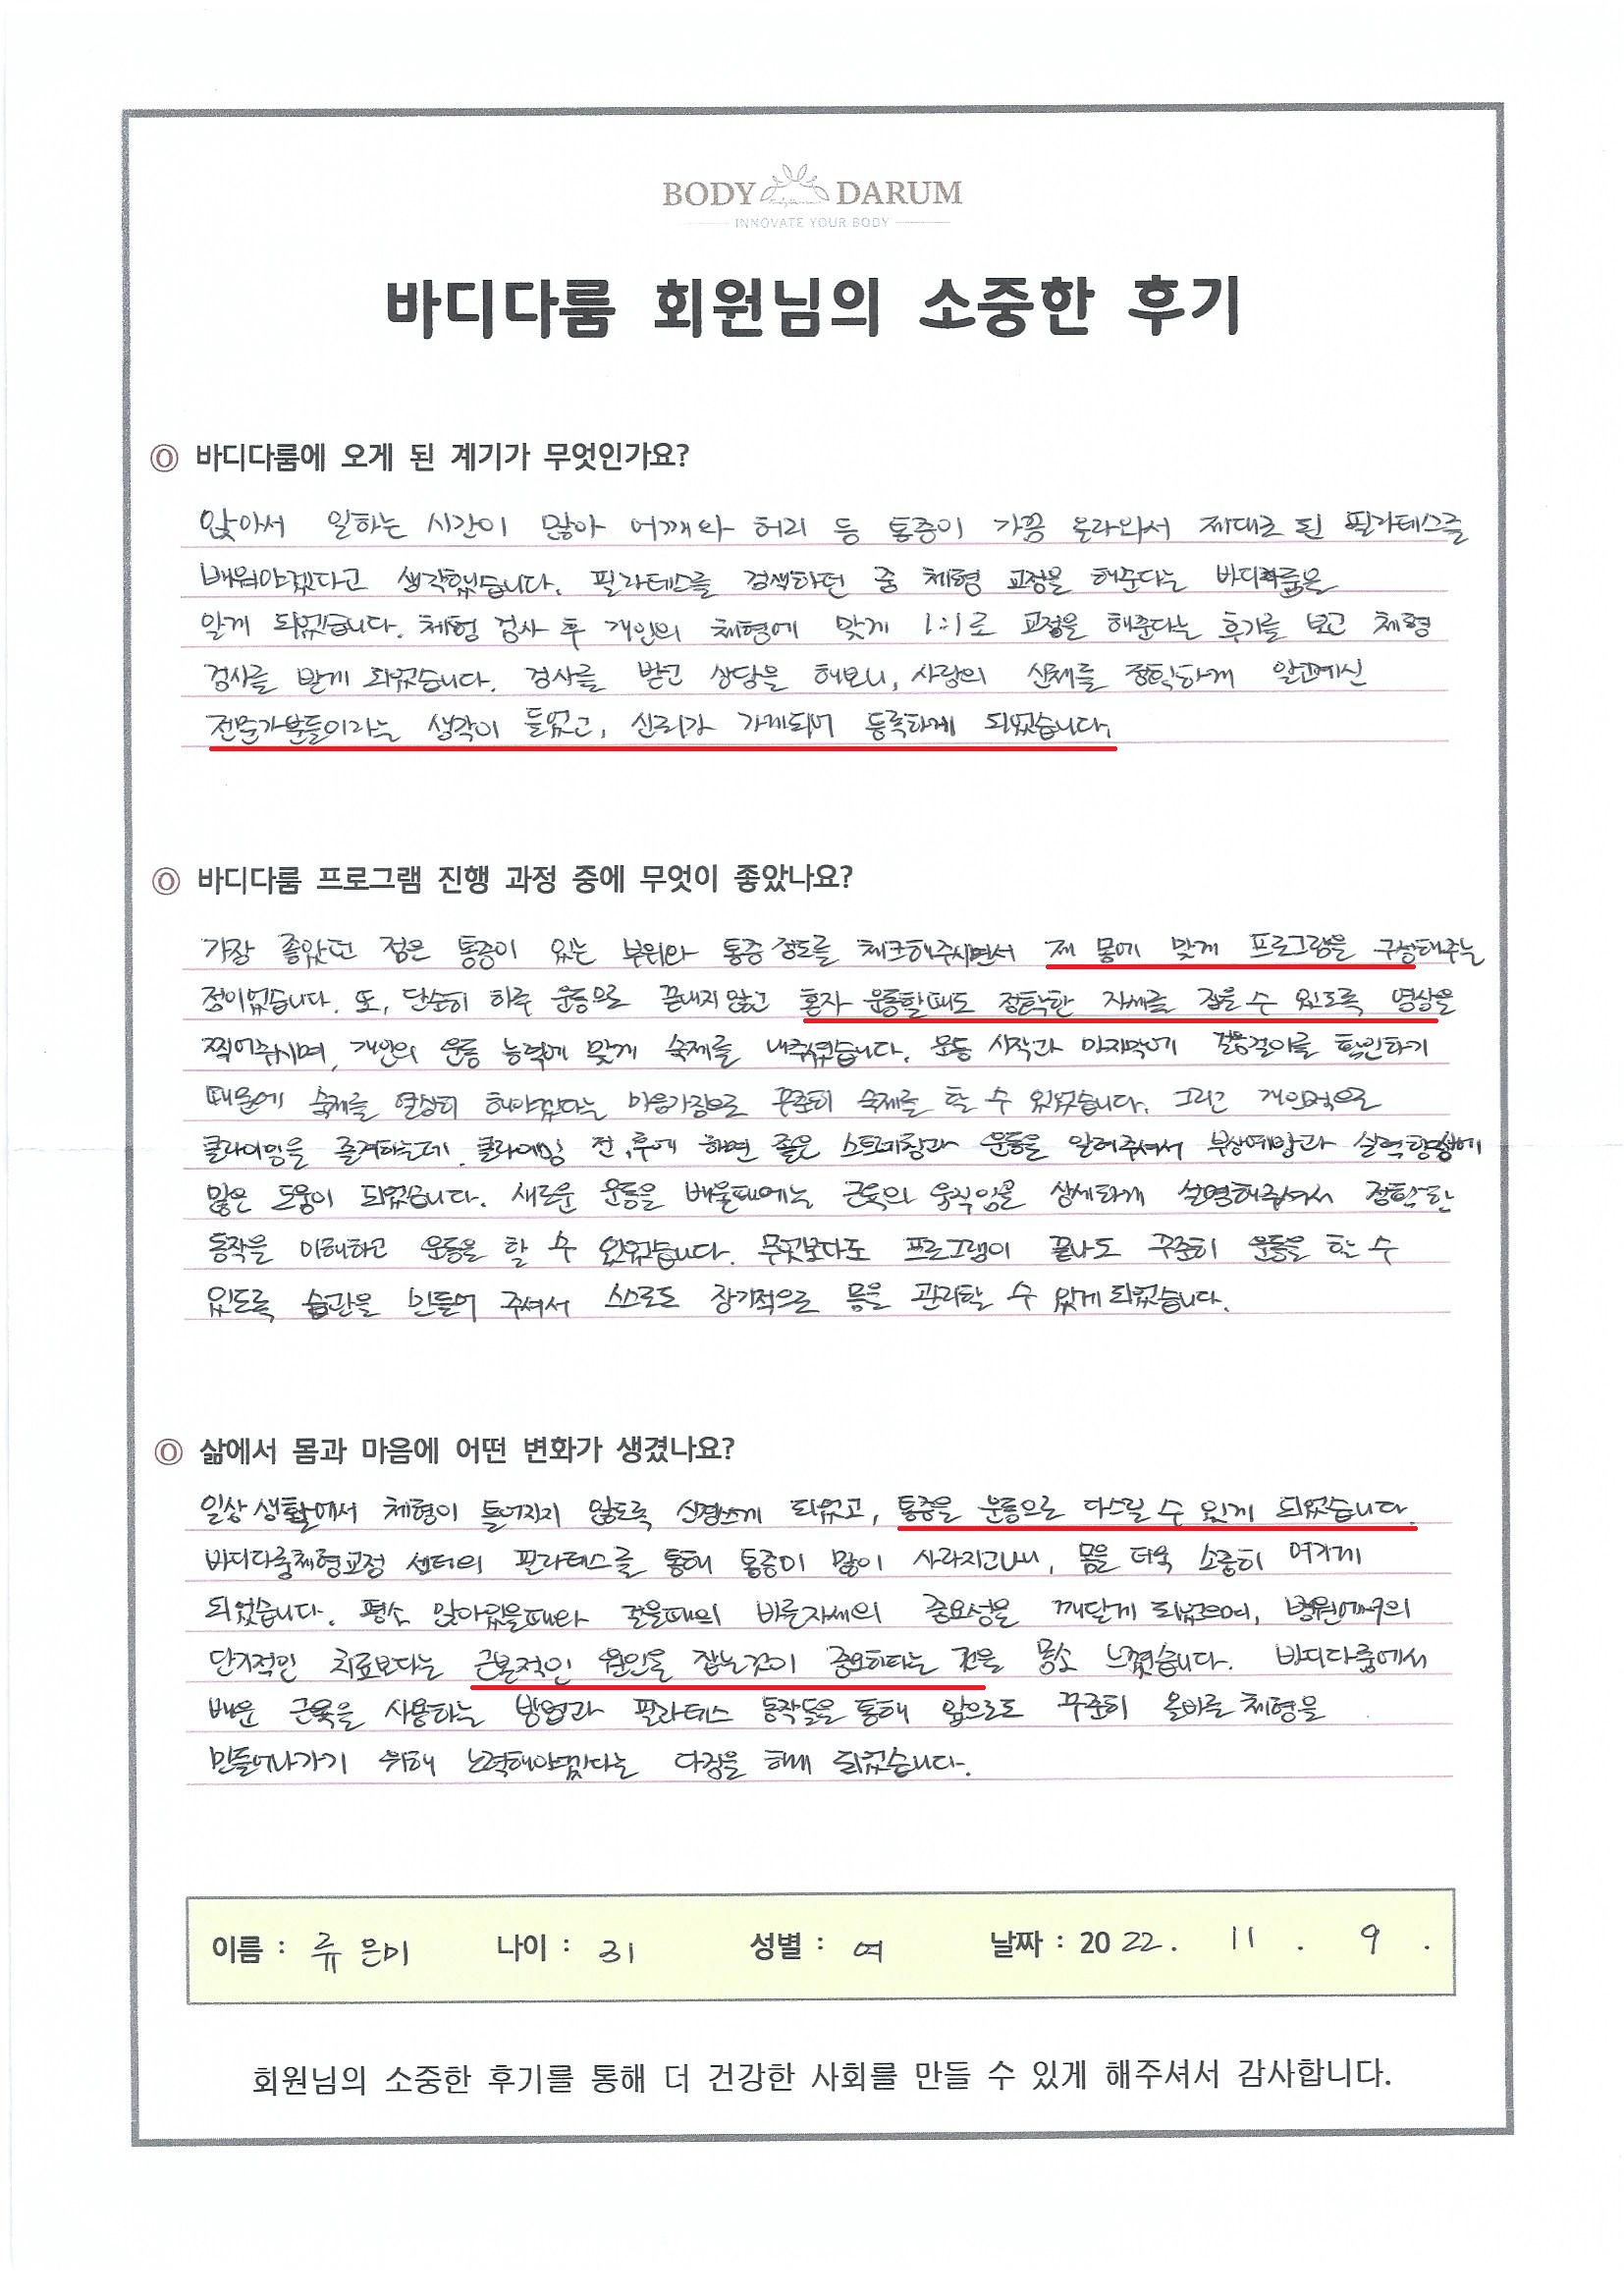 BODY DARUM
INNOVATE YOUR BODY
바디다룸 회원님의 소중한 후기
바디다룸에 오게 된 계기가 무엇인가요?
앉아서 일하는 시간이 많아 어깨와 허리 등 통증이 가끔 올라와서 제대로 된 필라테스를
배워야겠다고 생각했습니다. 필라테스를 검색하던 중 체형 교정을 해준다는 바디다룸을
알게 되었습니다. 체험 검사 후 개인의 체형에 맞게 1:1로 교정을 해준다는 후기를 보고 체형
검사를 받게 되었습니다. 검사를 받고 상담을 해보니, 사람의 신체를 정확하게 알고계신
전문가분들이라는 생각이 들었고, 신뢰가 가게되어 등록하게 되었습니다.
바디다룸 프로그램 진행 과정 중에 무엇이 좋았나요?
가장 좋았던 점은 통증이 있는 부위와 통증 정도를 체크해주시면서 제 몸에 맞게 프로그램을 구성해주는
점이었습니다. 또, 단순히 하루 운동으로 끝내지 않고 혼자 운동할때도 정확한 자세를 잡을 수 있도록 영상을
찍어주시며, 개인의 운동 능력에 맞게 숙제를 내주셨습니다. 운동 시작과 마지막에 걸음걸이를 확인하기
때문에 숙제를 열심히 해야겠다는 마음가짐으로 꾸준히 숙제를 할 수 있었습니다. 그리고 개인적으로
클라이밍을 즐겨하는데, 클라이밍 전, 후에 하면 좋은 스트레칭과 운동을 알려주셔서 부상예방과 실력향상에
많은 도움이 되었습니다. 새로운 운동을 배울때에는 근육의 움직임을 상세하게 설명해주셔서 정확한
동작을 이해하고 운동을 할 수 있었습니다. 무엇보다도 프로그램이 끝나도 꾸준히 운동을 할 수
있도록 습관을 만들어 주셔서 스스로도 장기적으로 몸을 관리할 수 있게 되었습니다.
삶에서 몸과 마음에 어떤 변화가 생겼나요?
일상생활에서 체형이 틀어지지 않도록 신경쓰게 되었고, 통증을 운동으로 다스릴 수 있게 되었습니다.
바디다룸체형교정 센터의 필라테스를 통해 통증이 많이 사라지고나니, 몸을 더욱 소중히 여기게
되었습니다. 평소 앉아있을때와 걸을때의 바른자세의 중요성을 깨닫게 되었으며, 병원에서의
단기적인 치료보다는 근본적인 원인을 잡는것이 중요하다는 것을 몸소 느꼈습니다. 바디다룸에서
배운 근육을 사용하는 방법과 필라테스 동작들을 통해 앞으로도 꾸준히 올바른 체형을
만들어나가기 위해 노력해야겠다는 다짐을 하게 되었습니다.
이름 : 류은미 나이 : 31 성별 : 여 날짜 : 2022. 11 . 9 .
회원님의 소중한 후기를 통해 더 건강한 사회를 만들 수 있게 해주셔서 감사합니다.